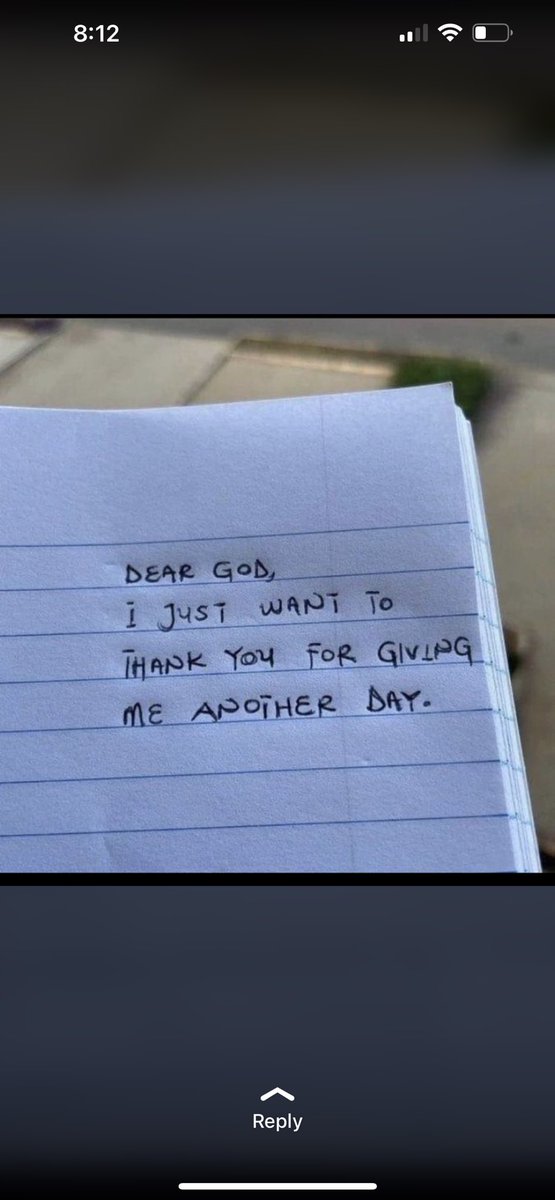 8:12
DEAR GOD,
I JUST WANT TO
THANK YOU FOR GIVING
ME ANOTHER DAY.
Reply